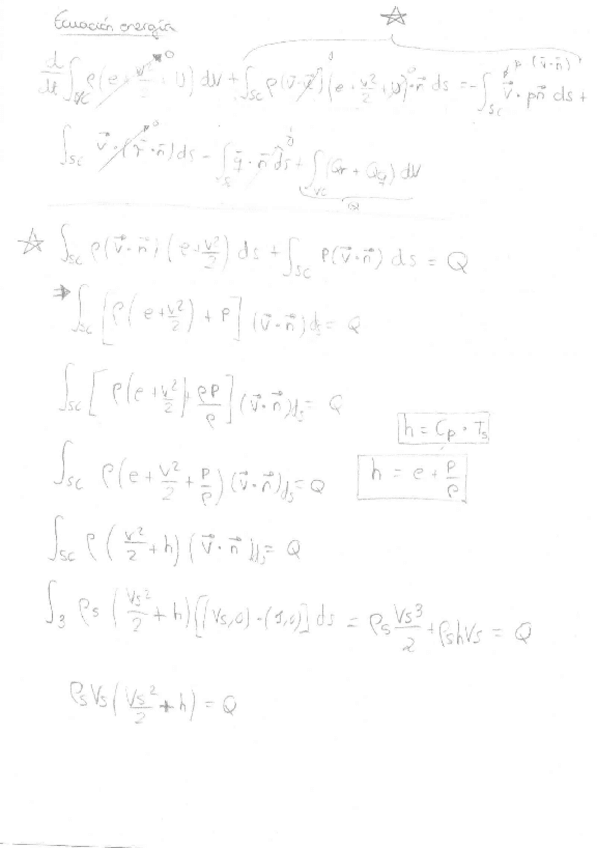 Ecuación energía
d/dt ∫_VC ρ(e + v²/2 + U) dV + ∫_SC ρ(v⃗ - ) (e + v²/2 + U)·n⃗ ds = - ∫_SC v⃗ · pn⃗ ds +
0 0 0 p (v⃗·n⃗)
∫_SC v⃗ · (τ · n⃗) ds - ∫_S q⃗ · n⃗ ds + ∫_VC (Qr + Qq) dV
0 0 Q
☆ ∫_SC ρ(v⃗·n⃗) (e + v²/2) ds + ∫_SC P(v⃗·n⃗) ds = Q
⇒ ∫_SC [ρ(e + v²/2) + P] (v⃗·n⃗) ds = Q
∫_SC [ρ(e + v²/2) + ρP/ρ] (v⃗·n⃗) ds = Q
h = Cp · Ts
∫_SC ρ(e + v²/2 + P/ρ) (v⃗·n⃗) ds = Q
h = e + P/ρ
∫_SC ρ (v²/2 + h) (v⃗·n⃗) ds = Q
∫_3 ρs (Vs²/2 + h) [(Vs,0)·(1,0)] ds = ρs Vs³/2 + ρs h Vs = Q
ρs Vs (Vs²/2 + h) = Q